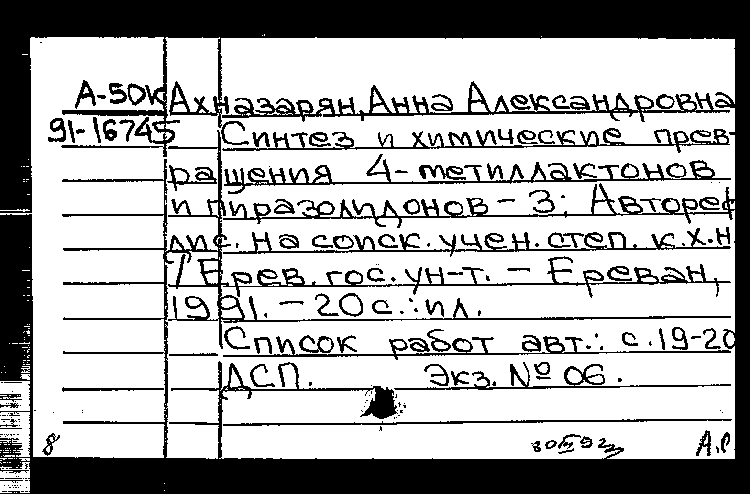 А-50К Ахназарян, Анна Александровна
91-16745 Синтез и химические прев-
ращения 4-метиллактонов
и пиразолидонов-3: Автореф
дис. на соиск. учен. степ. к.х.н
/ Ерев. гос. ун-т. - Ереван,
1991. - 20 с.: ил.
Список работ авт.: с. 19-20
ДСП. Экз. № 06.
8 А.Р